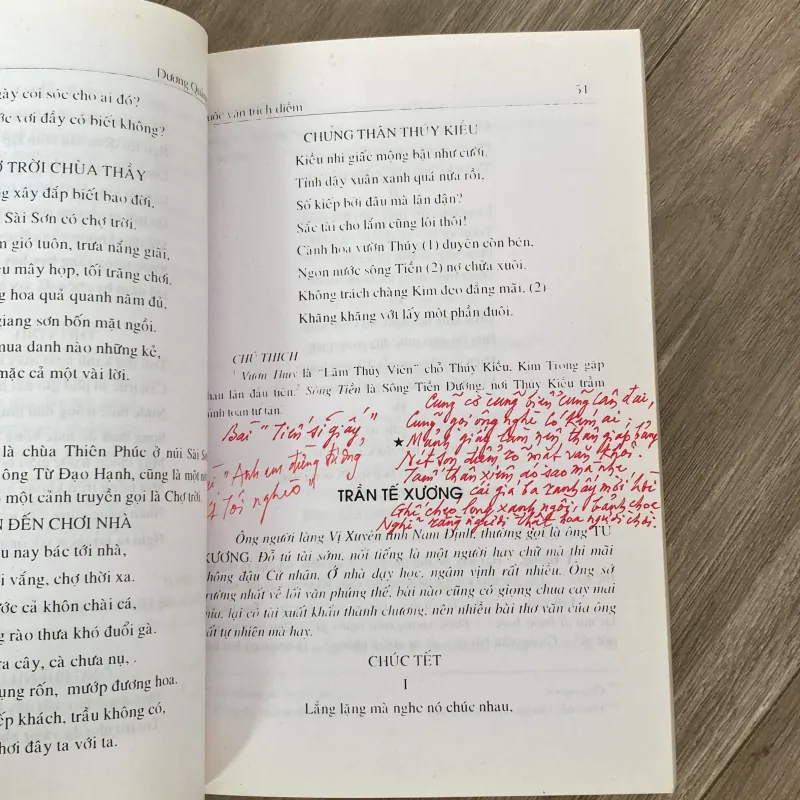 Dương Quản
gày coi sóc cho ai đó?
ớc với đầy có biết không?
Ợ TRỜI CHÙA THẦY
g xây đắp biết bao đời,
Sài Sơn có chợ trời.
n gió tuôn, trưa nắng giãi,
ều mây họp, tối trăng chơi.
g hoa quả quanh năm đủ,
giang sơn bốn mặt ngồi.
mua danh nào những kẻ,
mặc cả một vài lời.
là chùa Thiên Phúc ở núi Sài Sơn
ông Từ Đạo Hạnh, cũng là một
ó một cảnh truyền gọi là Chợ trời.
N ĐẾN CHƠI NHÀ
u nay bác tới nhà,
i vắng, chợ thời xa.
ớc cả khôn chài cá,
g rào thưa khó đuổi gà.
ra cây, cà chưa nụ,
ụng rốn, mướp đương hoa.
iếp khách, trầu không có,
hơi đây ta với ta.
uốc văn trích diễm
51
CHUNG THÂN THÚY KIỀU
Kiều nhi giấc mộng bật như cười,
Tỉnh dậy xuân xanh quá nửa rồi,
Số kiếp bởi đâu mà lận đận?
Sắc tài cho lắm cũng lôi thôi!
Cành hoa vườn Thúy (1) duyên còn bén,
Ngọn nước sông Tiền (2) nợ chửa xuôi.
Không trách chàng Kim đeo đẳng mãi, (2)
Khăng khăng vớt lấy một phần đuôi.
CHÚ THÍCH
1 Vườn Thúy là "Lãm Thúy Viên" chỗ Thúy Kiều, Kim Trọng gặp
nhau lần đầu tiên. 2 Sông Tiền là Sông Tiền Đường, nơi Thúy Kiều trầm
mình toan tự tận.
Bài "Tiến sĩ giấy"
"Anh em đừng tưởng
Tới nghèo"
Cũng cờ cũng biển cũng cân đai,
Cũng gọi ông nghè có kém ai;
Mảnh giấy làm nên thân giáp bảng
Nét son điểm rõ mặt văn khôi.
Tấm thân xiêm áo sao mà nhẹ
cái giá ba ranh ấy mới hời
Ghế chéo lọng xanh ngồi bảnh chọe
Nghĩ rằng người thật hóa người chơi.
★
TRẦN TẾ XƯƠNG
Ông người làng Vị Xuyên tỉnh Nam Định, thường gọi là ông TÚ
XƯƠNG. Đỗ tú tài sớm, nổi tiếng là một người hay chữ mà thi mãi
không đậu Cử nhân. Ở nhà dạy học, ngâm vịnh rất nhiều. Ông sở
trường nhất về lối văn phúng thế, bài nào cũng có giọng chua cay mai
mỉa, lại có tài xuất khẩu thành chương, nên nhiều bài thơ văn của ông
rất tự nhiên mà hay.
CHÚC TẾT
I
Lẳng lặng mà nghe nó chúc nhau,